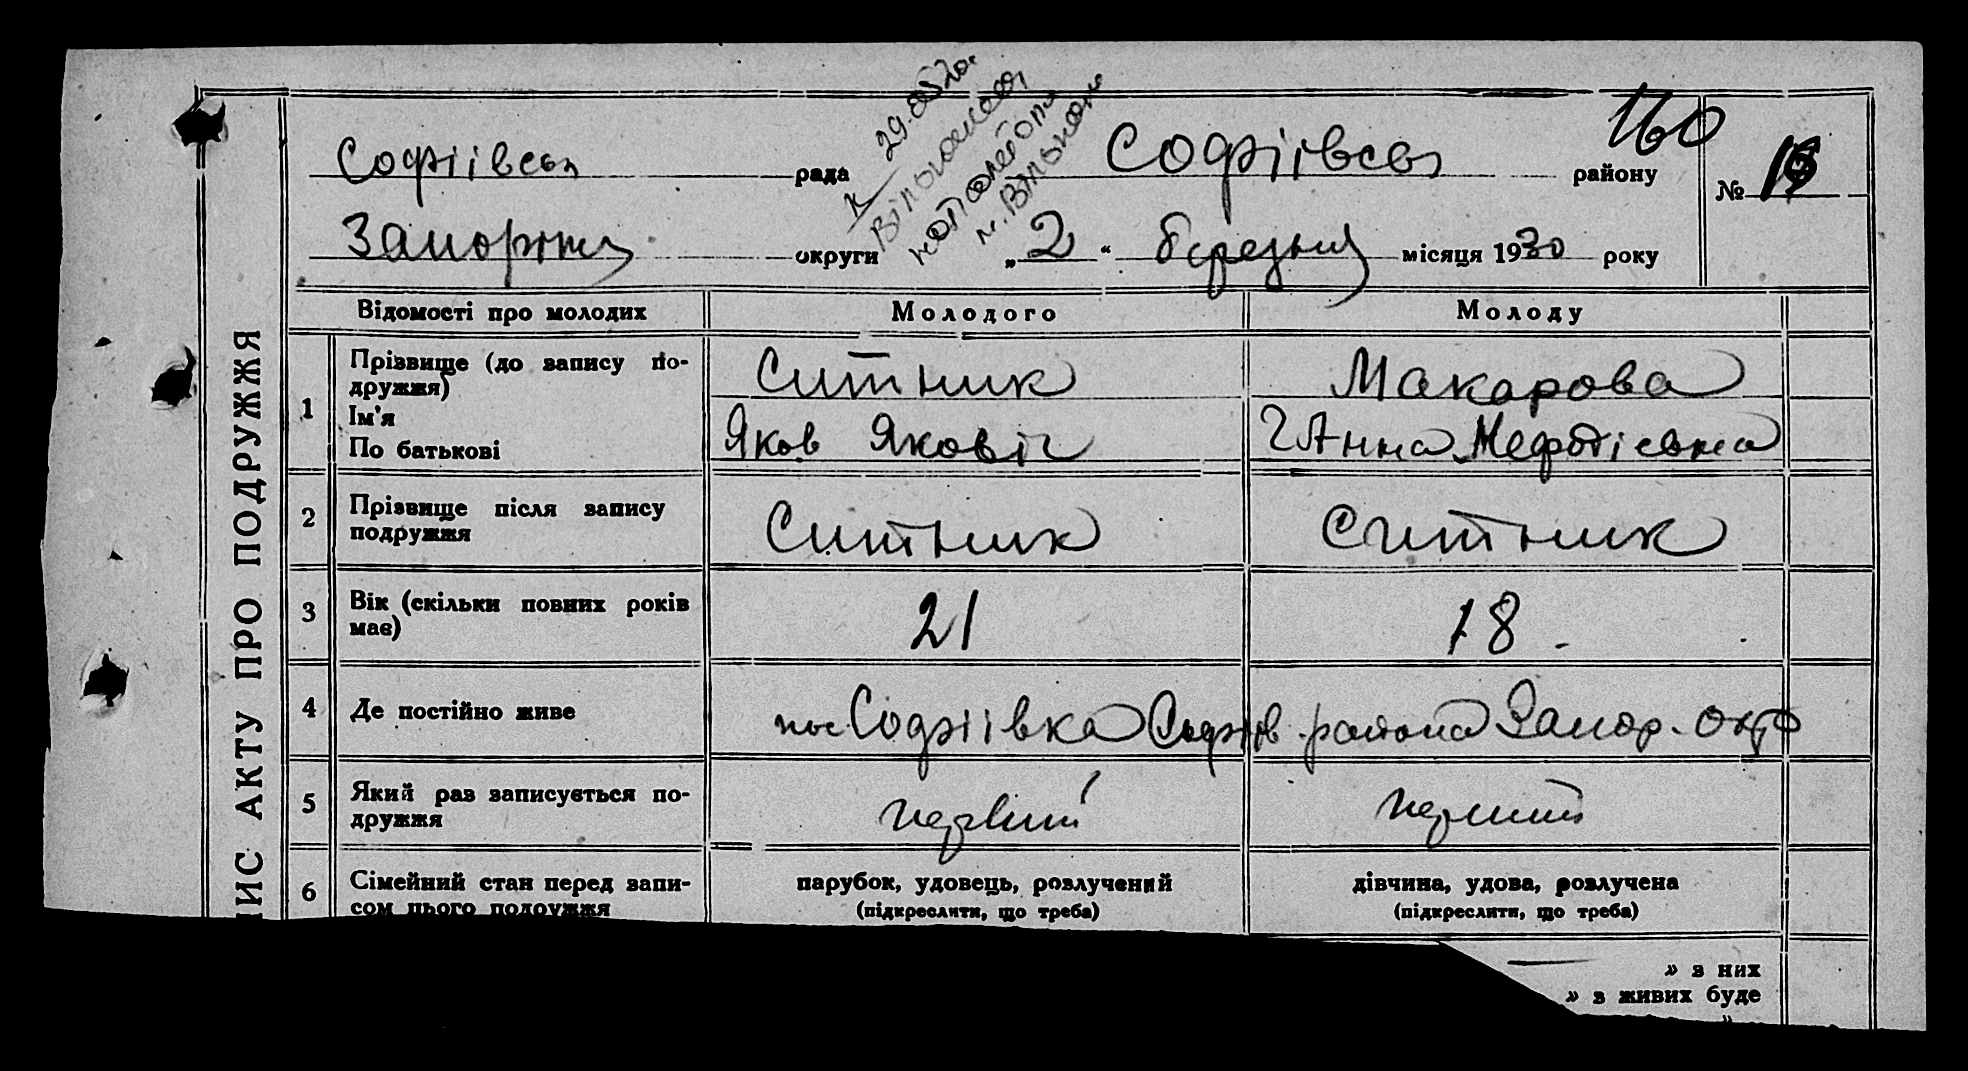 160
Софіївськ рада Софіївськ району №
Запоріжж округи „ 2 “ березня місяця 1930 року
ИС АКТУ ПРО ПОДРУЖЖЯ
Відомості про молодих Молодого Молоду
1 Прізвище (до запису по-
дружжя) Ситник Макарова
Ім'я
По батькові Яков Якович Ганна Мефодієвна
2 Прізвище після запису
подружжя Ситник Ситник
3 Вік (скільки повних років
має) 21 18
4 Де постійно живе пос Софіївка Софіїв. района Запор. окр
5 Який раз записується по-
дружжя первий перший
6 Сімейний стан перед запи- парубок, удовець, розлучений дівчина, удова, розлучена
сом цього подружжя (підкреслити, що треба) (підкреслити, що треба)
» з них
» з живих буде